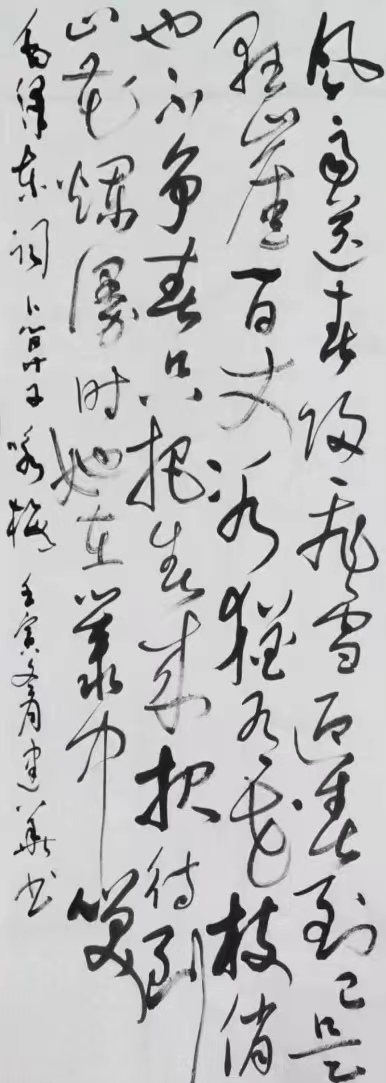 风雨送春归飞雪迎春到已是
悬崖百丈冰犹有花枝俏
也不争春只把春来报待到
山花烂漫时她在丛中笑
毛泽东词卜算子咏梅 壬寅建华书